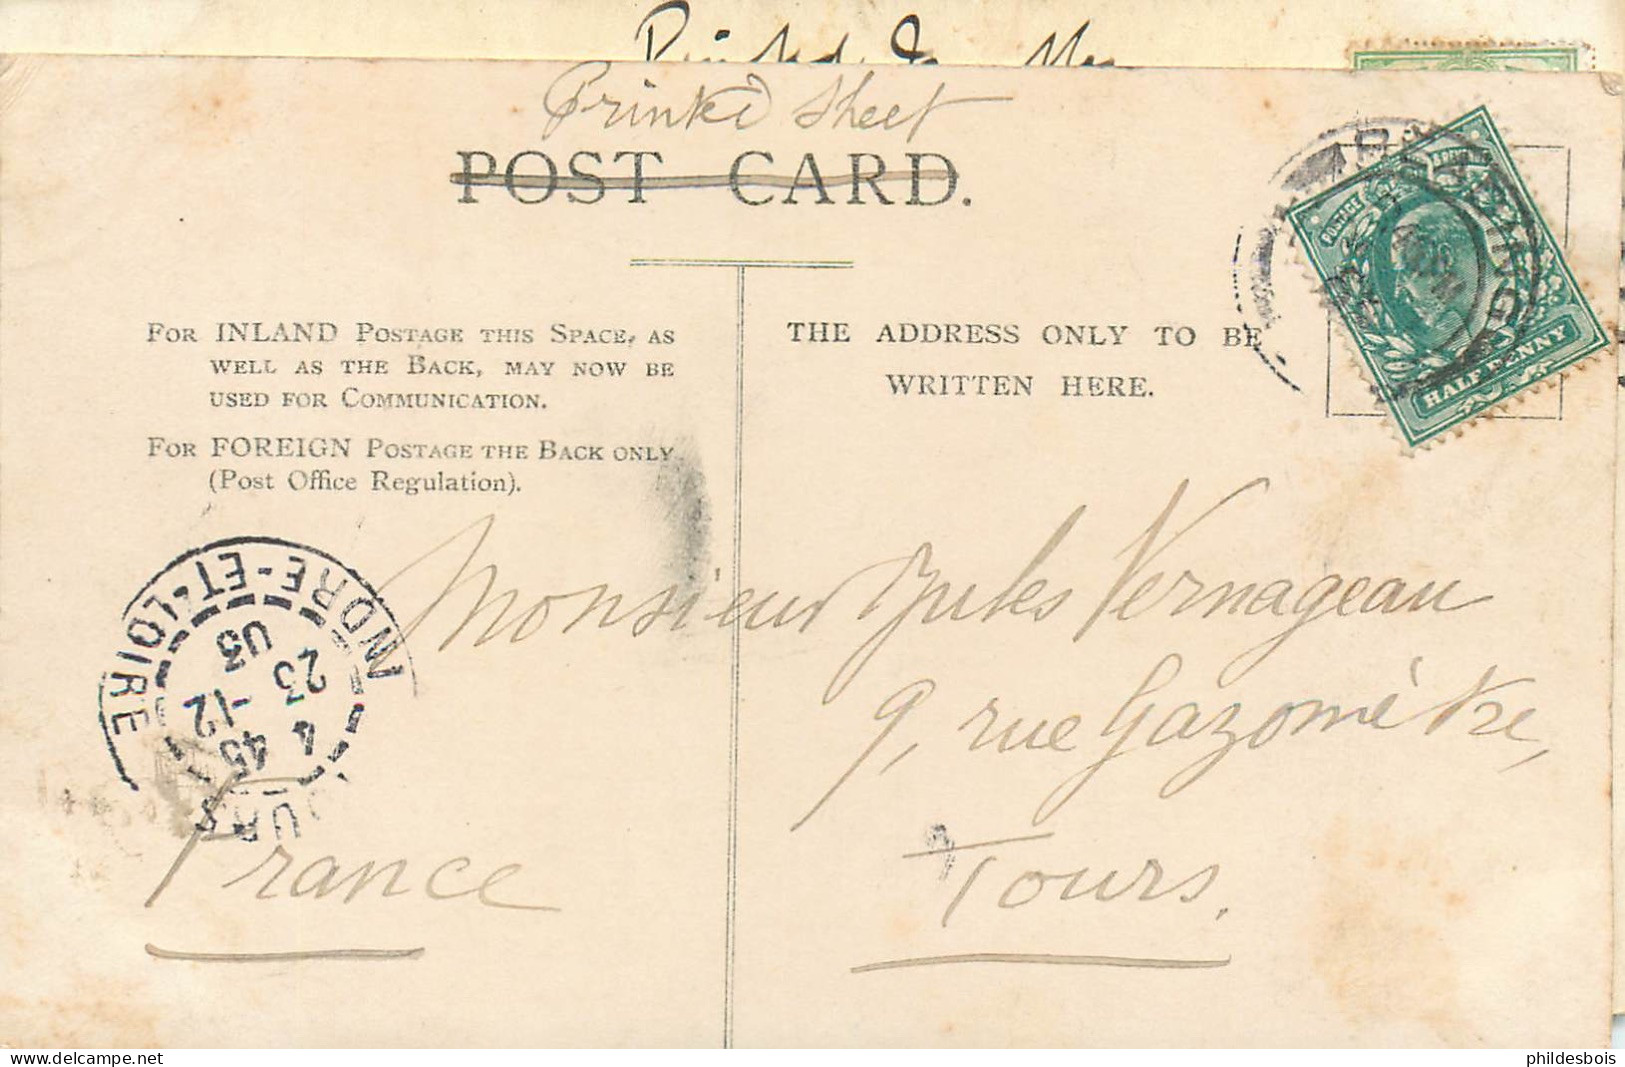 Printed
Printed Sheet
POST CARD.
FOR INLAND POSTAGE THIS SPACE, AS
WELL AS THE BACK, MAY NOW BE
USED FOR COMMUNICATION.
FOR FOREIGN POSTAGE THE BACK ONLY
(Post Office Regulation).
THE ADDRESS ONLY TO BE
WRITTEN HERE.
POSTAGE
HALF PENNY
INDRE-ET-LOIRE
4 45
23 -12
03
Monsieur Jules Vernageau
9, rue Gazomètre,
Tours.
France
phildesbois
delcampe.net